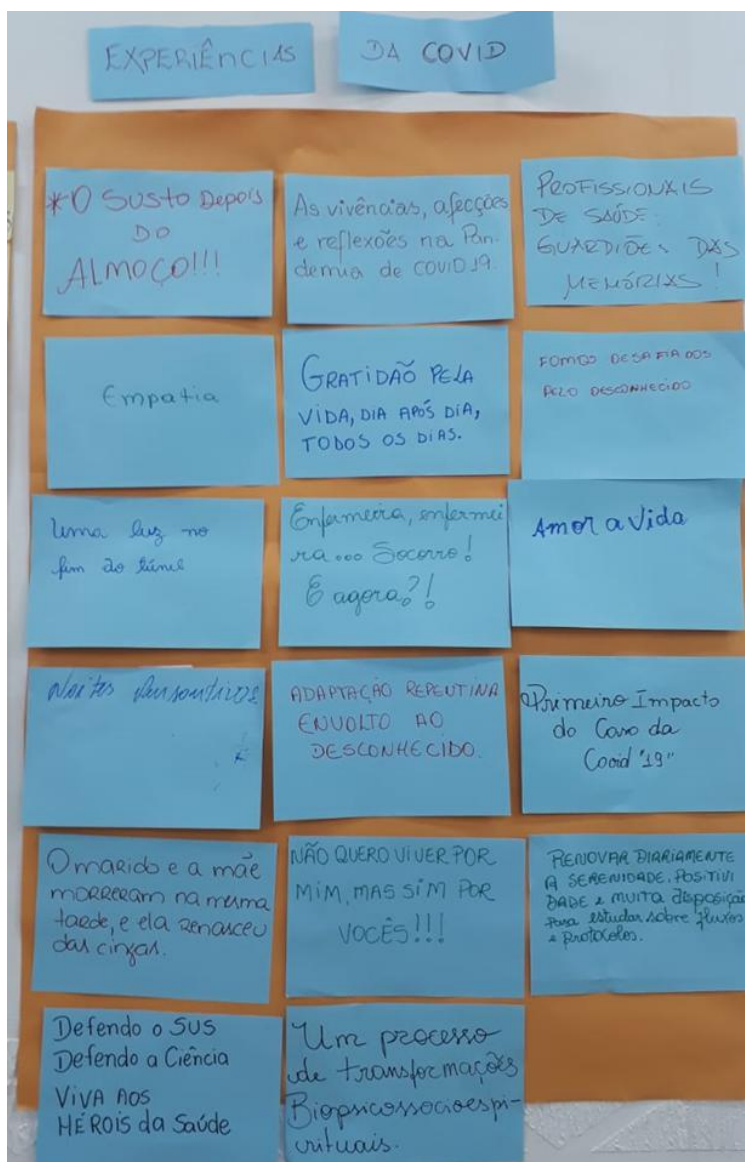 EXPERIÊNCIAS DA COVID
*O SUSTO DEPOIS
DO
ALMOÇO!!!
As vivências, afecções
e reflexões na Pan-
demia de COVID 19.
PROFISSIONAIS
DE SAÚDE:
GUARDIÕES DAS
MEMÓRIAS!
Empatia
GRATIDÃO PELA
VIDA, DIA APÓS DIA,
TODOS OS DIAS.
FOMOS DESAFIADOS
PELO DESCONHECIDO
Uma luz no
fim do túnel
Enfermeira, enfermei
ra... Socorro!
E agora?!
Amor a Vida
Noites
ADAPTAÇÃO REPENTINA
ENVOLTO AO
DESCONHECIDO.
Primeiro Impacto
do Caso da
Covid "19"
O marido e a mãe
morreram na mesma
tarde, e ela renasceu
das cinzas.
NÃO QUERO VIVER POR
MIM, MAS SIM POR
VOCÊS!!!
RENOVAR DIARIAMENTE
A SERENIDADE, POSITIVI
DADE e MUITA disposição
Para estudar sobre fluxos
e protocolos.
Defendo o SUS
Defendo a Ciência
VIVA AOS
HÉROIS da Saúde
Um processo
de transformações
Biopsicossocioespi-
rituais.